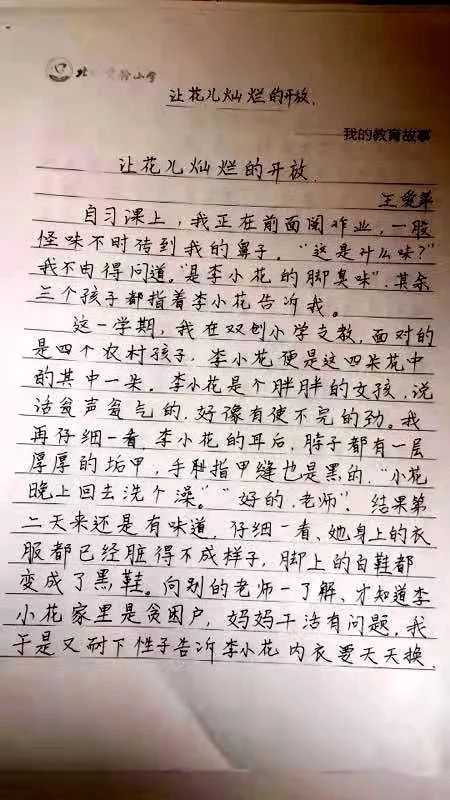 北 实验小学
让花儿灿烂的开放.
——我的教育故事
让花儿灿烂的开放.
王爱萍
自习课上，我正在前面阅作业，一股
怪味不时传到我的鼻子。“这是什么味？”
我不由得问道。“是李小花的脚臭味”，其余
三个孩子都指着李小花告诉我。
这一学期，我在双创小学支教，面对的
是四个农村孩子，李小花便是这四朵花中
的其中一朵。李小花是个胖胖的女孩，说
话瓮声瓮气的，好像有使不完的劲。我
再仔细一看，李小花的耳后，脖子都有一层
厚厚的垢甲，手和指甲缝也是黑的，“小花
晚上回去洗个澡。”“好的，老师”，结果第
二天来还是有味道，仔细一看、她身上的衣
服都已经脏得不成样子，脚上的白鞋都
变成了黑鞋。向别的老师一了解、才知道李
小花家里是贫困户，妈妈干活有问题，我
于是又耐下性子告诉李小花内衣要天天换，